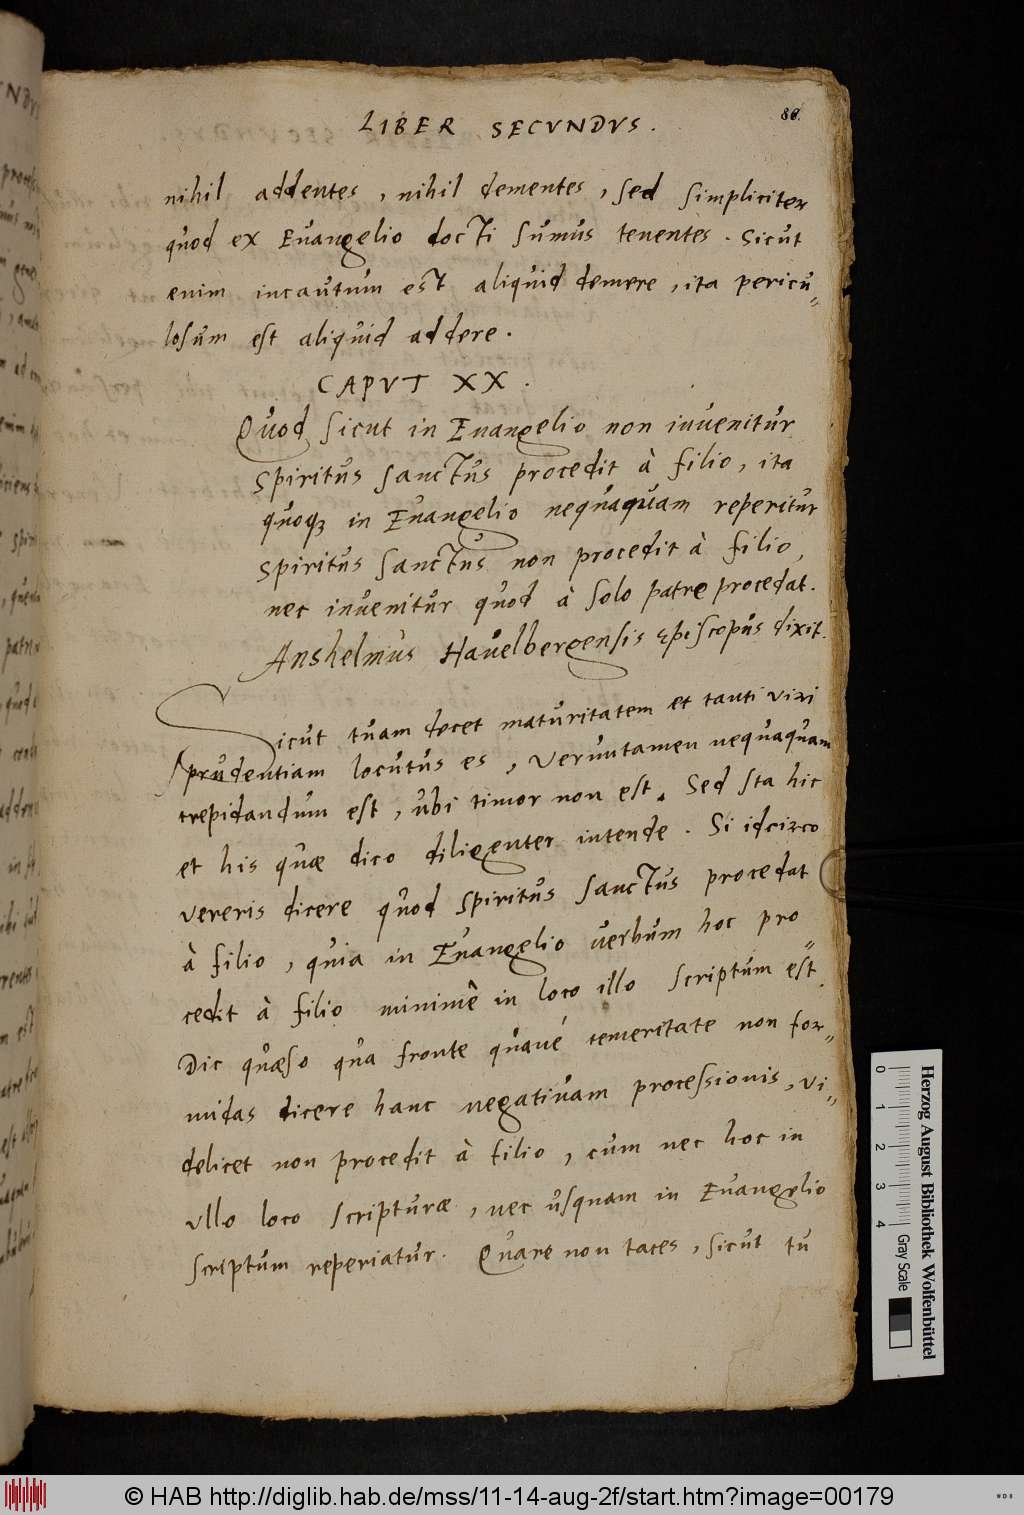 LIBER SECVNDVS.
nihil addentes, nihil dementes, sed simpliciter
quod ex Euangelio docti sumus tenentes. Sicut
enim incautum est aliquid demere, ita pericu„
losum est aliquid addere.
CAPVT XX.
Quod sicut in Euangelio non inuenitur
Spiritus sanctus procedit à filio, ita
quoqꝫ in Euangelio nequaquam reperitur
Spiritus sanctus non procedit à filio,
nec inuenitur quod à solo patre procedat.
Anshelmus Hauelbergensis episcopus dixit.
Sicut tuam decet maturitatem et tanti viri
prudentiam locutus es, Veruntamen nequaquam
trepidandum est, ubi timor non est. Sed sta hic
et his quæ dico diligenter intende. Si idcirco
vereris dicere quod spiritus sanctus procedat
à filio, quia in Euangelio verbum hoc pro„
cedit à filio minimè in loco illo scriptum est.
Dic quæso qua fronte quaué temeritate non for„
midas dicere hanc negatiuam processionis, vi„
delicet non procedit à filio, cum nec hoc in
ullo loco scripturæ, nec usquam in Euangelio
scriptum reperiatur. Quare non taces, sicut tu
Herzog August Bibliothek Wolfenbüttel
0 1 2 3 4 Gray Scale
© HAB http://diglib.hab.de/mss/11-14-aug-2f/start.htm?image=00179